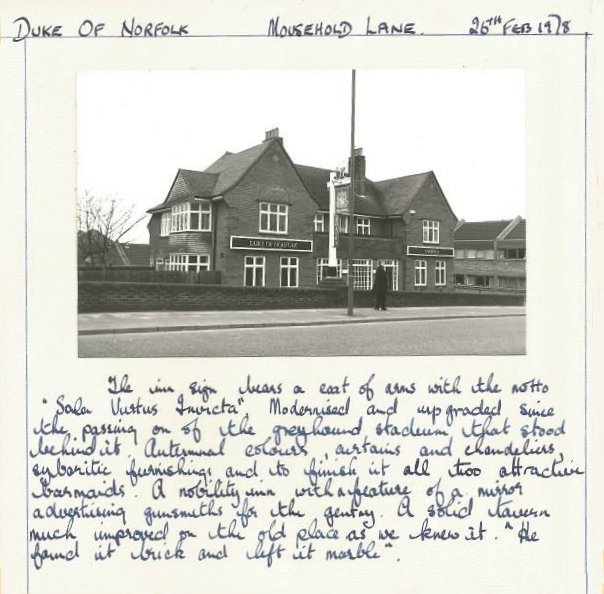 DUKE OF NORFOLK MOUSEHOLD LANE. 26TH FEB 1978
DUKE OF NORFOLK
The inn sign bears a coat of arms with the motto
"Sola Virtus Invicta" Modernised and upgraded since
the passing on of the greyhound stadium that stood
behind it. Autumnal colours, curtains and chandeliers,
sybaritic furnishings and to finish it all too attractive
barmaids. A nobility inn with a feature of a mirror
advertising gunsmiths for the gentry. A solid tavern
much improved on the old place as we knew it. "He
found it brick and left it marble".